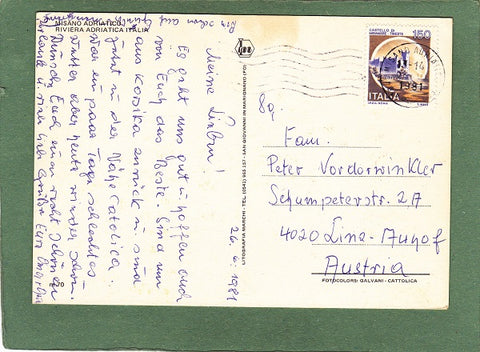 MISANO ADRIATICO
RIVIERA ADRIATICA ITALIA
26. 6. 1981
Meine Lieben!
Es geht uns gut u. hoffen auch
von Euch das Beste. Sind nun
aus Korsika zurück u. sind
jetzt in der Nähe Catolica.
War ein paar Tage schlechtes
Wetter aber heute wieder schön.
Wünsche Euch einen recht schönen
Urlaub u. viele liebe Grüße Eure
Bin schon auf
LITOGRAFIA MARCHI - TEL. (0541) 955 157 - SAN GIOVANNI IN MARIGNANO (FO)
CASTELLO DI
MIRAMARE - TRIESTE
150
ITALIA
1981
Fam.
Peter Vorderwinkler
Schumpeterstr. 2A
4020 Linz-Auhof
Austria
FOTOCOLORS: GALVANI - CATTOLICA